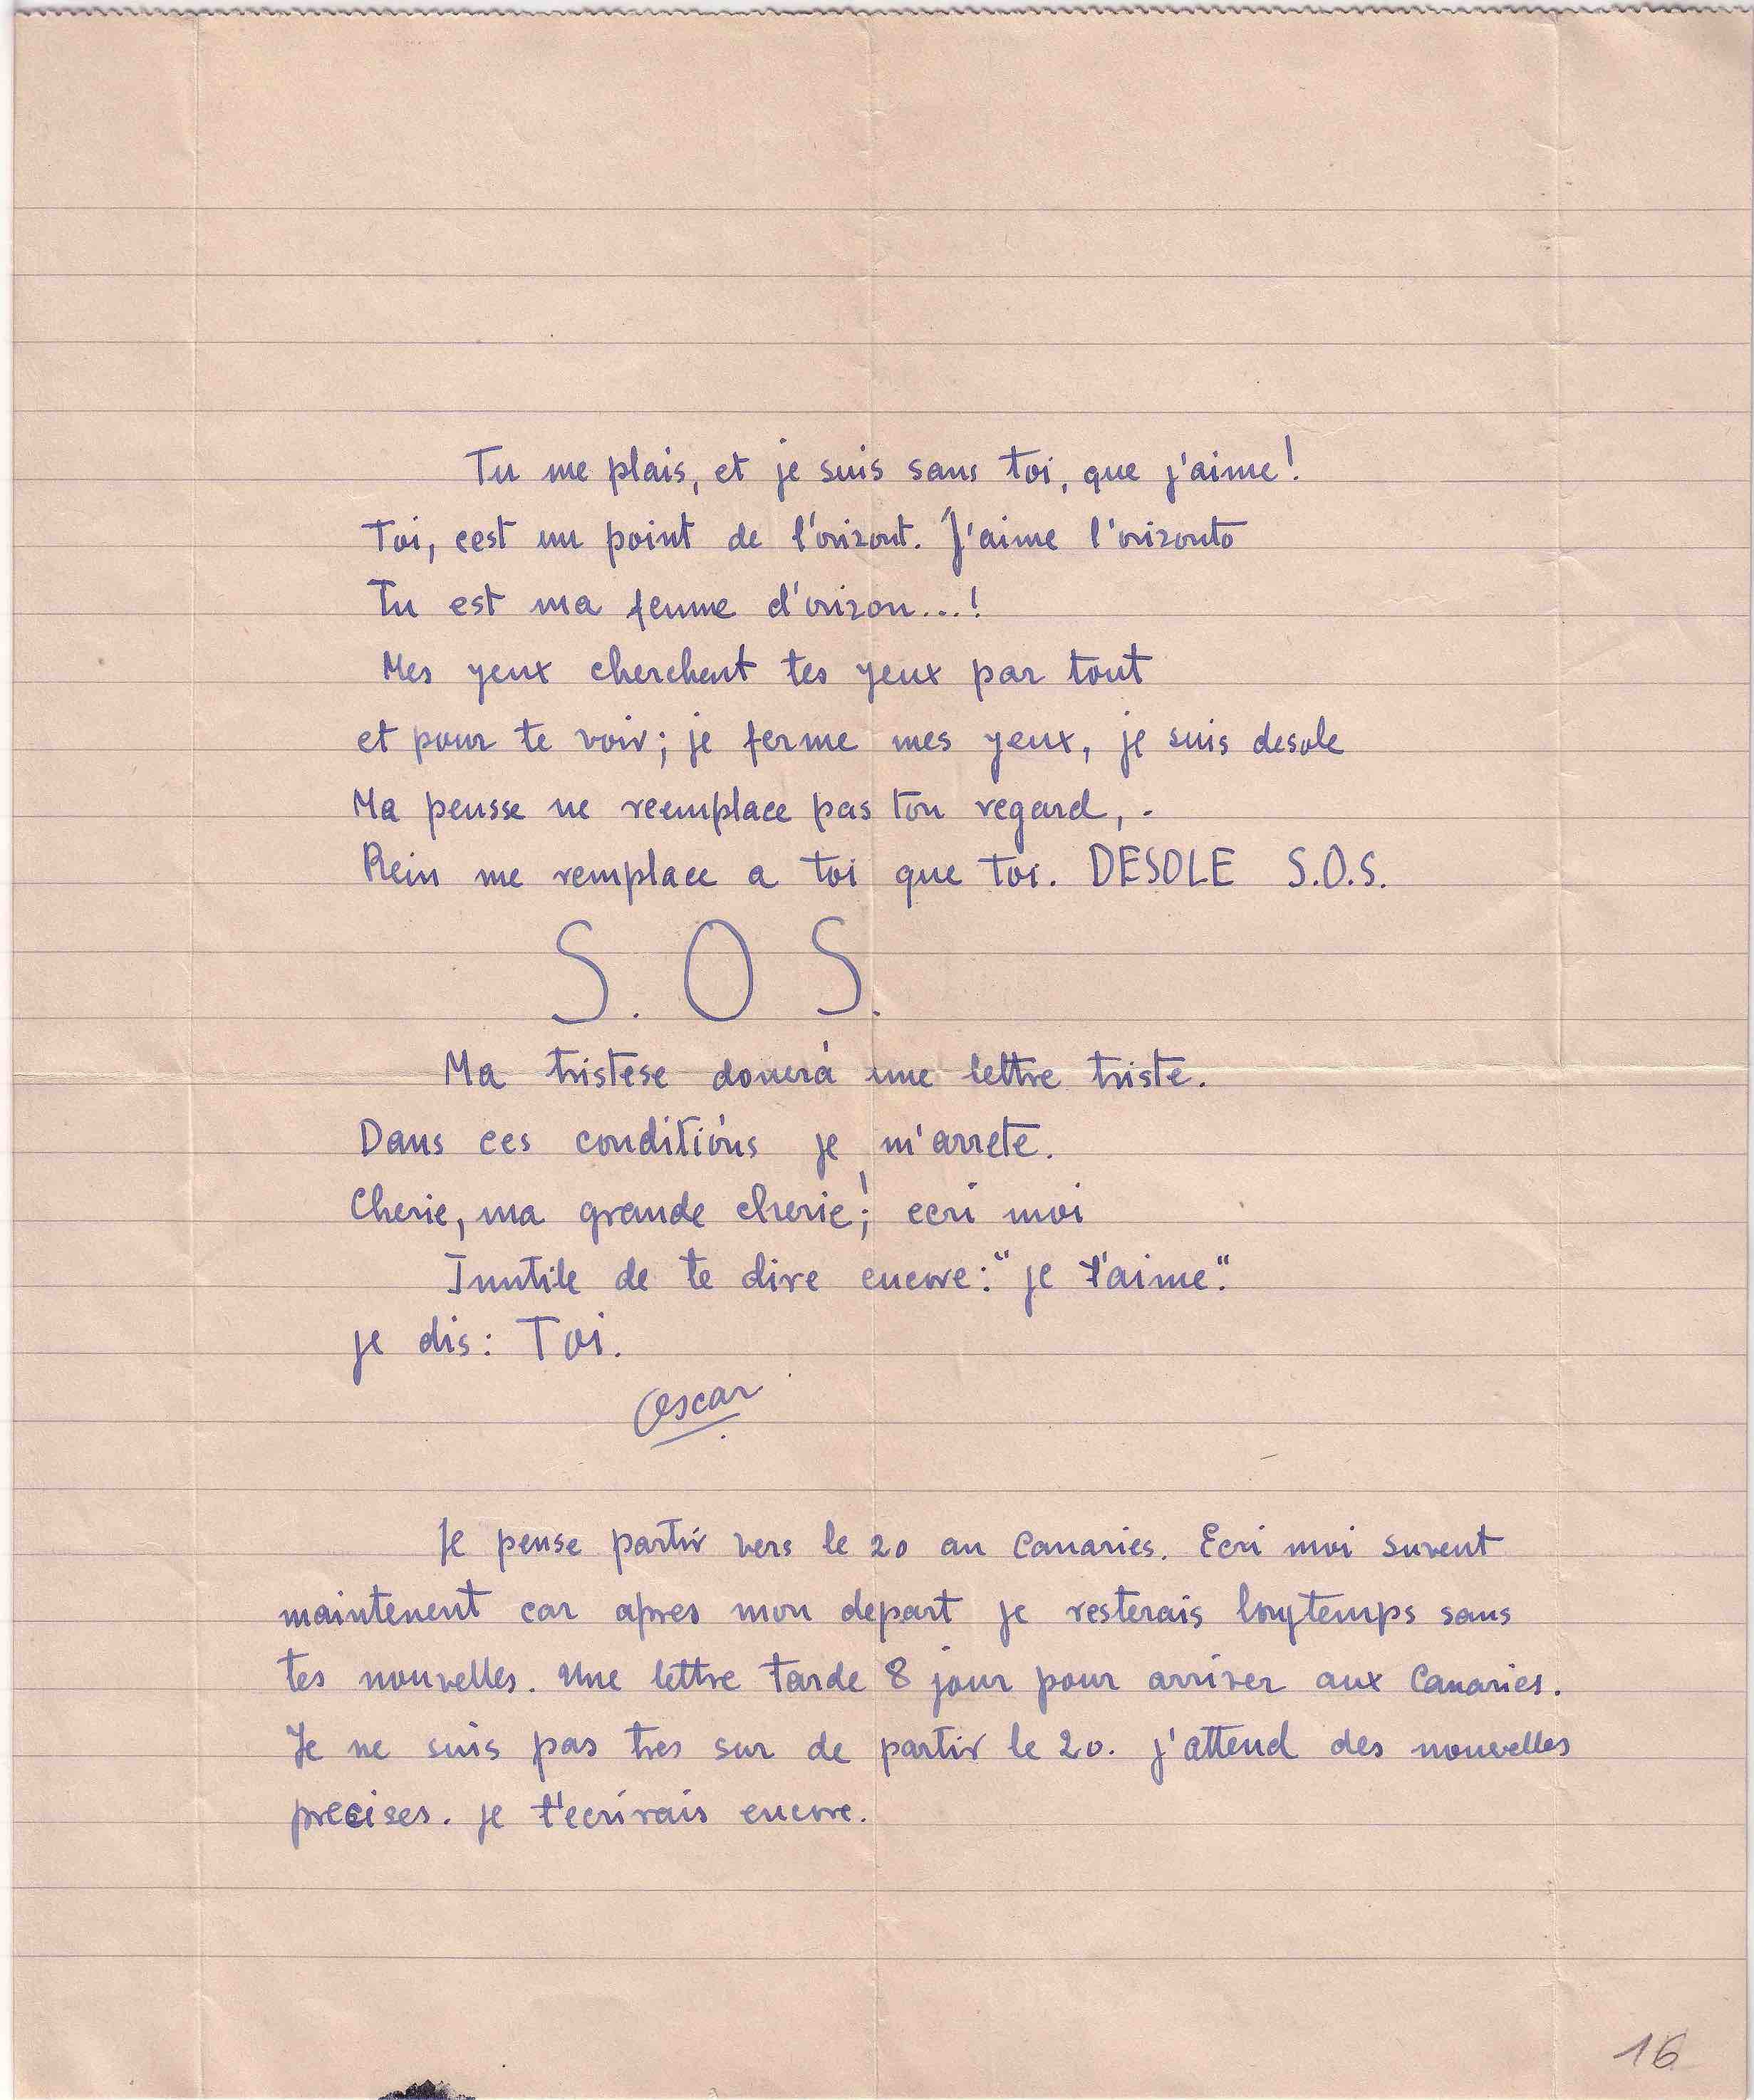 Tu me plais, et je suis sans toi, que j'aime!
Toi, cest un point de l'orizont. J'aime l'orizonto
Tu est ma femme d'orizon...!
Mes yeux cherchent tes yeux par tout
et pour te voir; je ferme mes yeux, je suis desole
Ma pensse ne reemplace pas ton regard, .
Rein me remplace a toi que toi. DESOLE S.O.S.
S.O S.
Ma tristese donerá une lettre triste.
Dans ces conditións je m'arrete.
Cherie, ma grande cherie! ecri moi
Inutile de te dire encore: "je t'aime".
je dis: Toi.
Oscar
Je pense partir vers le 20 au Canaries. Ecri moi suvent
maintenent car apres mon depart je resterais longtemps sans
tes nouvelles. Une lettre tarde 8 jour pour arriver aux Canaries.
Je ne suis pas tres sur de partir le 20. j'attend des nouvelles
precises. je t'ecrirais encore.
16